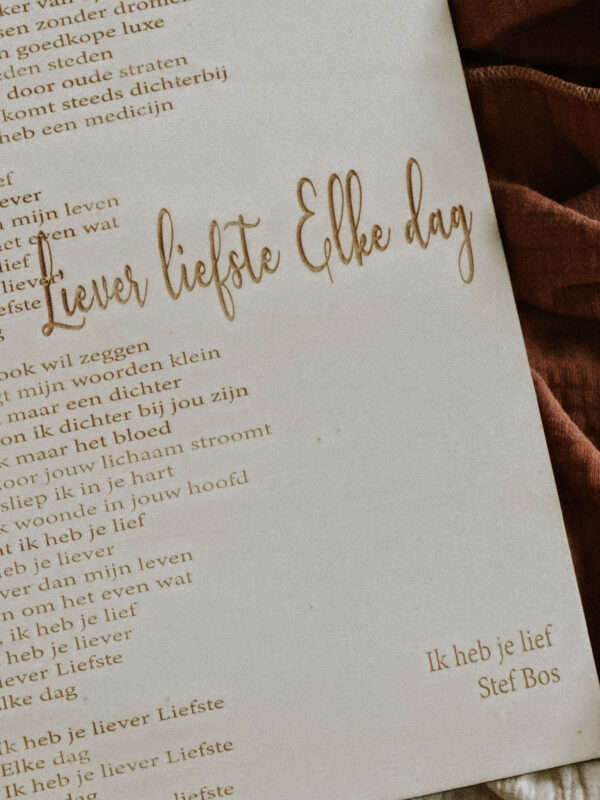 sen zonder dromen
n goedkope luxe
eden steden
door oude straten
komt steeds dichterbij
heb een medicijn
ef
iever
n mijn leven
et even wat
lief
liever
efste
Liever liefste Elke dag
ook wil zeggen
gt mijn woorden klein
maar een dichter
on ik dichter bij jou zijn
k maar het bloed
door jouw lichaam stroomt
sliep ik in je hart
k woonde in jouw hoofd
t ik heb je lief
heb je liever
ver dan mijn leven
n om het even wat
, ik heb je lief
heb je liever
iever Liefste
Elke dag
Ik heb je liever Liefste
Elke dag
Ik heb je liever Liefste
dag
liefste
Ik heb je lief
Stef Bos